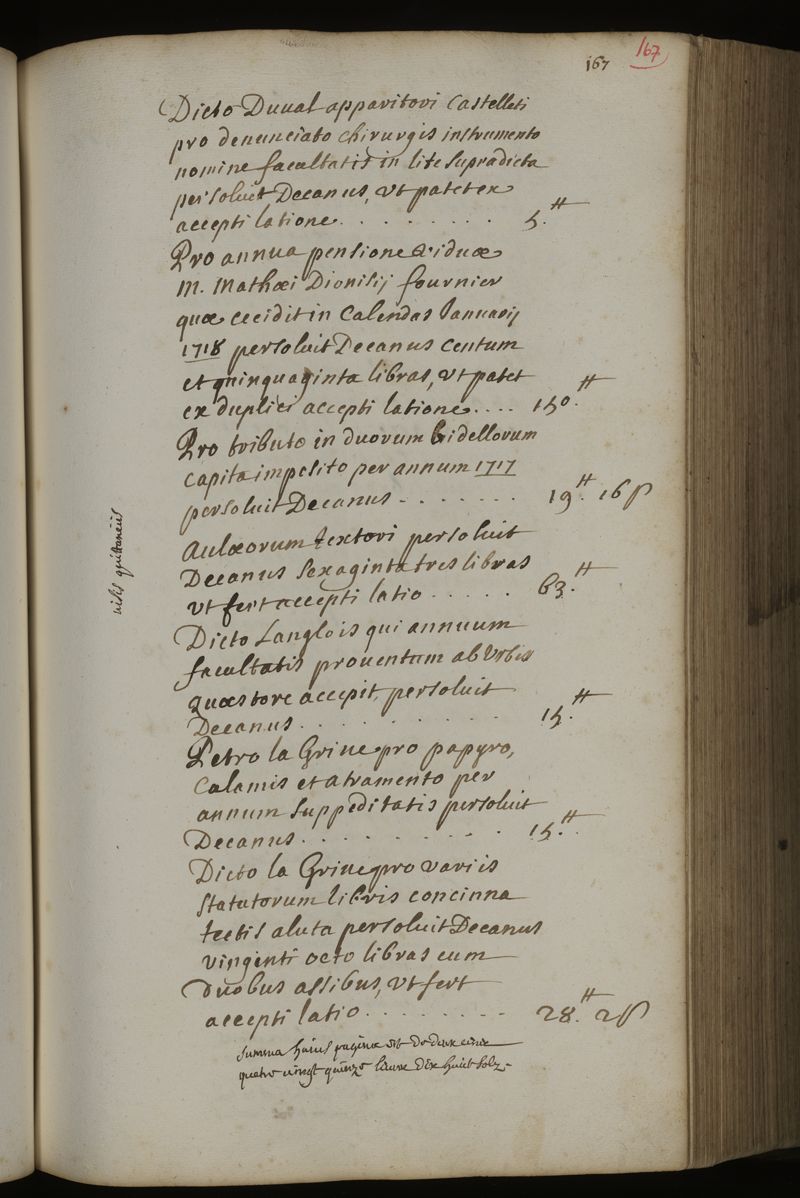 167 167
Dicto Duual apparitori Castelleti
pro denunciato chirurgis instrumento
nomine facultatis in lite supradicta
persoluit Decanus, vt patet ex
accepti latione . . . . . . . . 5.tt
Pro annua pensione viduæ
M. Mathæi Dionisij fournier
quæ cecidit in Calendas Januarij
1718 persoluit Decanus centum
et quinquaginta libras, vt patet
ex duplici accepti latione . . . . 150.tt
Pro tributo in duorum bidellorum
capita imposito per annum 1717
persoluit Decanus - . . . . . . . 19.tt 16ſ
visis quittanciis
Aulæorum textori persoluit
Decanus sexaginta tres libras
vt fert accepti latio . . . . . 63.tt
Dicto Langlois qui annuum
facultatis prouentum ab Vrbis
quæstore accepit, persoluit
Decanus . . . . . . . . . . 15.tt
Petro la Griue pro papyro,
calamis et atramento per
annum suppeditatis persoluit
Decanus . . . . . . . . . . 15.tt
Dicto la Griue pro variis
statutorum libris concinna
tectis aluta persoluit Decanus
vinginti octo libras cum
duobus assibus, vt fert
accepti latio . . . . . . . . 28.tt 2ſ
summa huius paginæ est de deux cent
quatre vingt quinze liures dix huit solz